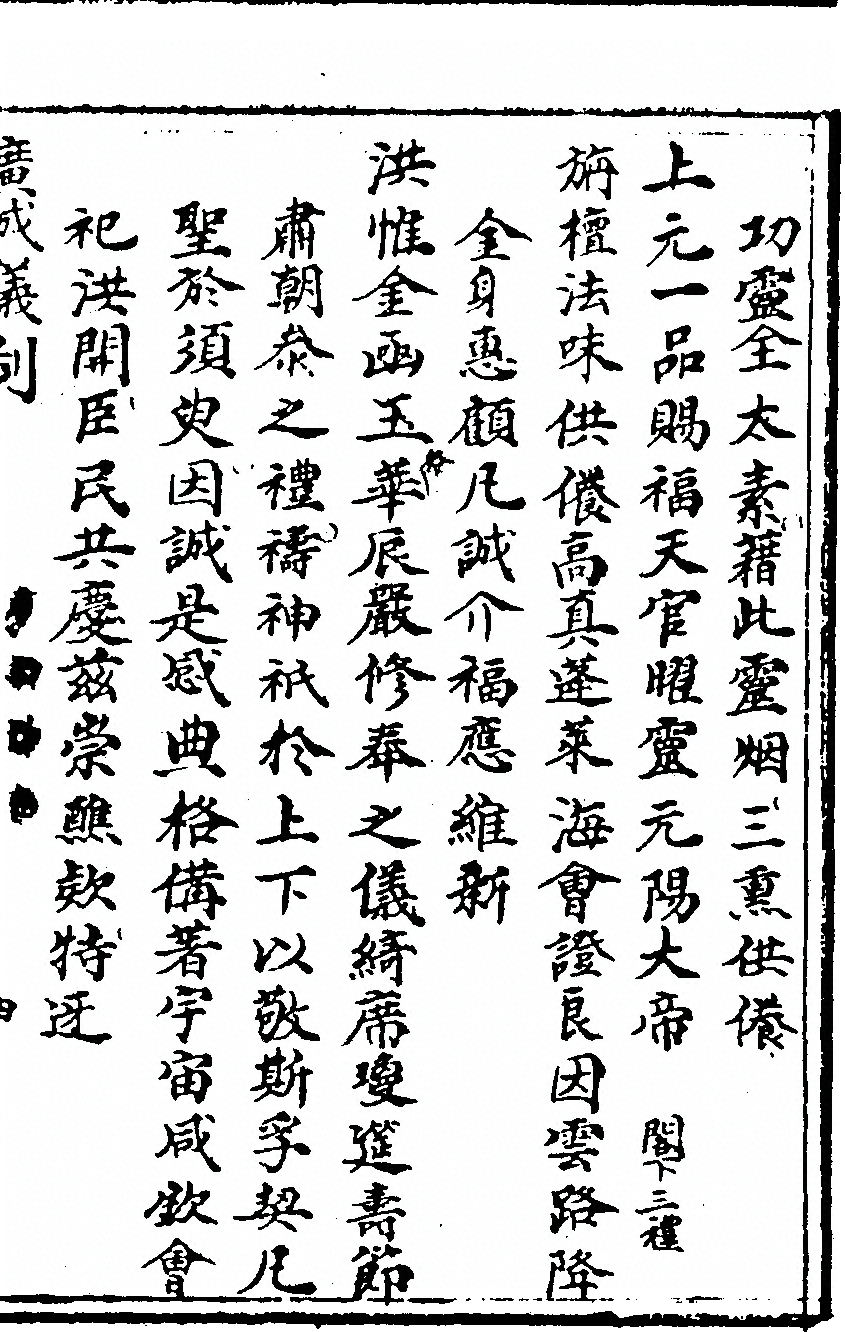 功靈全太素藉此靈烟三熏供養
上元一品賜福天官曜靈元陽大帝 閣下三禮
旃檀法味供養高真蓬萊海會證良因雲路降
金身惠顧凡誠介福應維新
洪惟金函玉華辰嚴修奉之儀綺席瓊筵壽節
肅朝泰之禮禱神祇於上下以敬斯孚契凡
聖於須臾因誠是感典格備著宇宙咸欽會
祀洪開臣民共慶茲崇醮欵特迓
廣成儀制